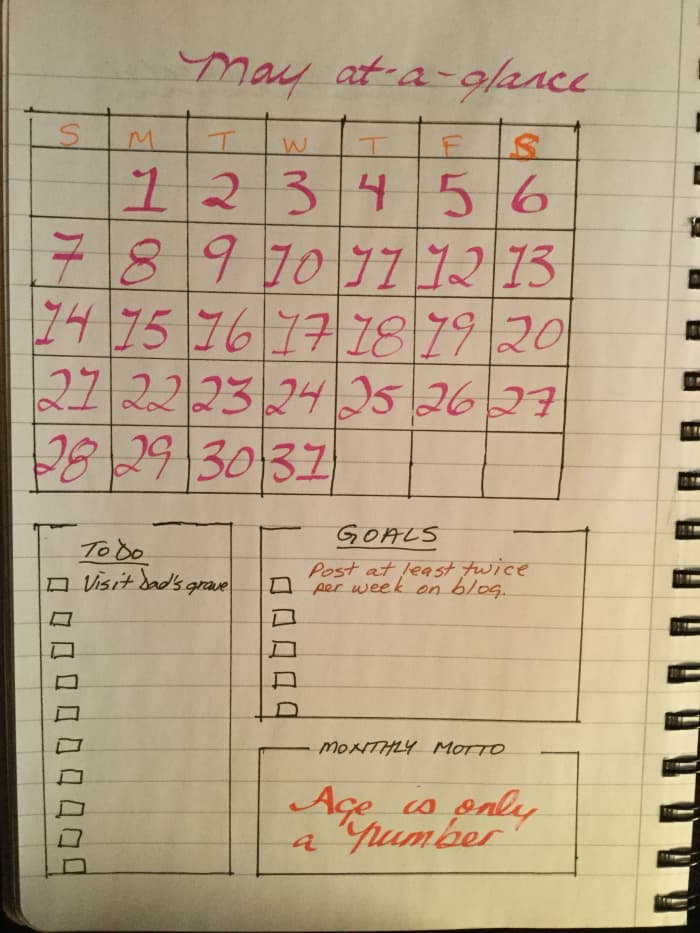 May at-a-glance
S M T W T F S
1 2 3 4 5 6
7 8 9 10 11 12 13
14 15 16 17 18 19 20
21 22 23 24 25 26 27
28 29 30 31
To Do
Visit Dad's grave
GOALS
Post at least twice
per week on blog.
MONTHLY MOTTO
Age is only
a number